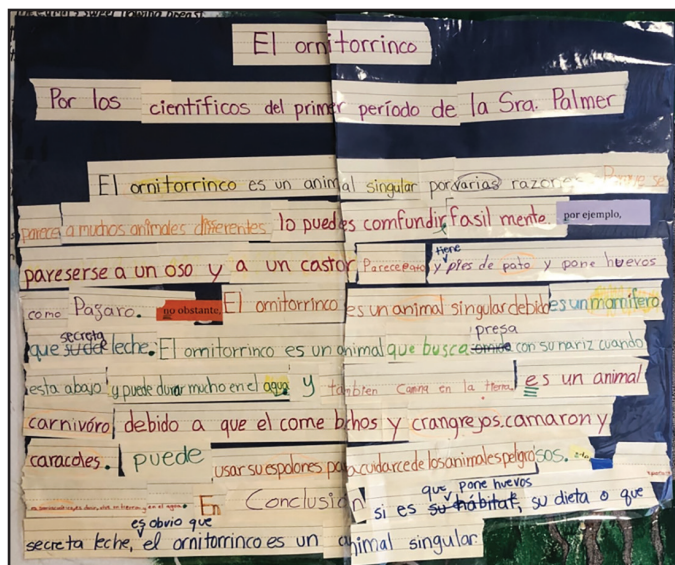 El ornitorrinco
Por los científicos del primer período de la Sra. Palmer
El ornitorrinco es un animal singular por varias razon
parece a muchos animales differentes lo puedes comfundir fasil mente. por ejemplo,
pareserse a un oso y a un castor Parece pato y tiene pies de pato y pone huevos
como Pagaro. no obstante, El ornitorrinco es un animal singular debido es un mamifero
que secreta leche. El ornitorrinco es un animal que busca presa con su nariz cuando
esta abajo y puede durar mucho en el agua y tambien camina en la tierra es un animal
carnivóro debido a que el come bchos y crangrejos. camaron y
caracoles. puede usar su espolores para cuidarce de los animales pelgrosos.
En Conclusión si es que pone huevos su hábitat, su dieta o que
secreta leche, es obvio que el ornitorrinco es un animal singular